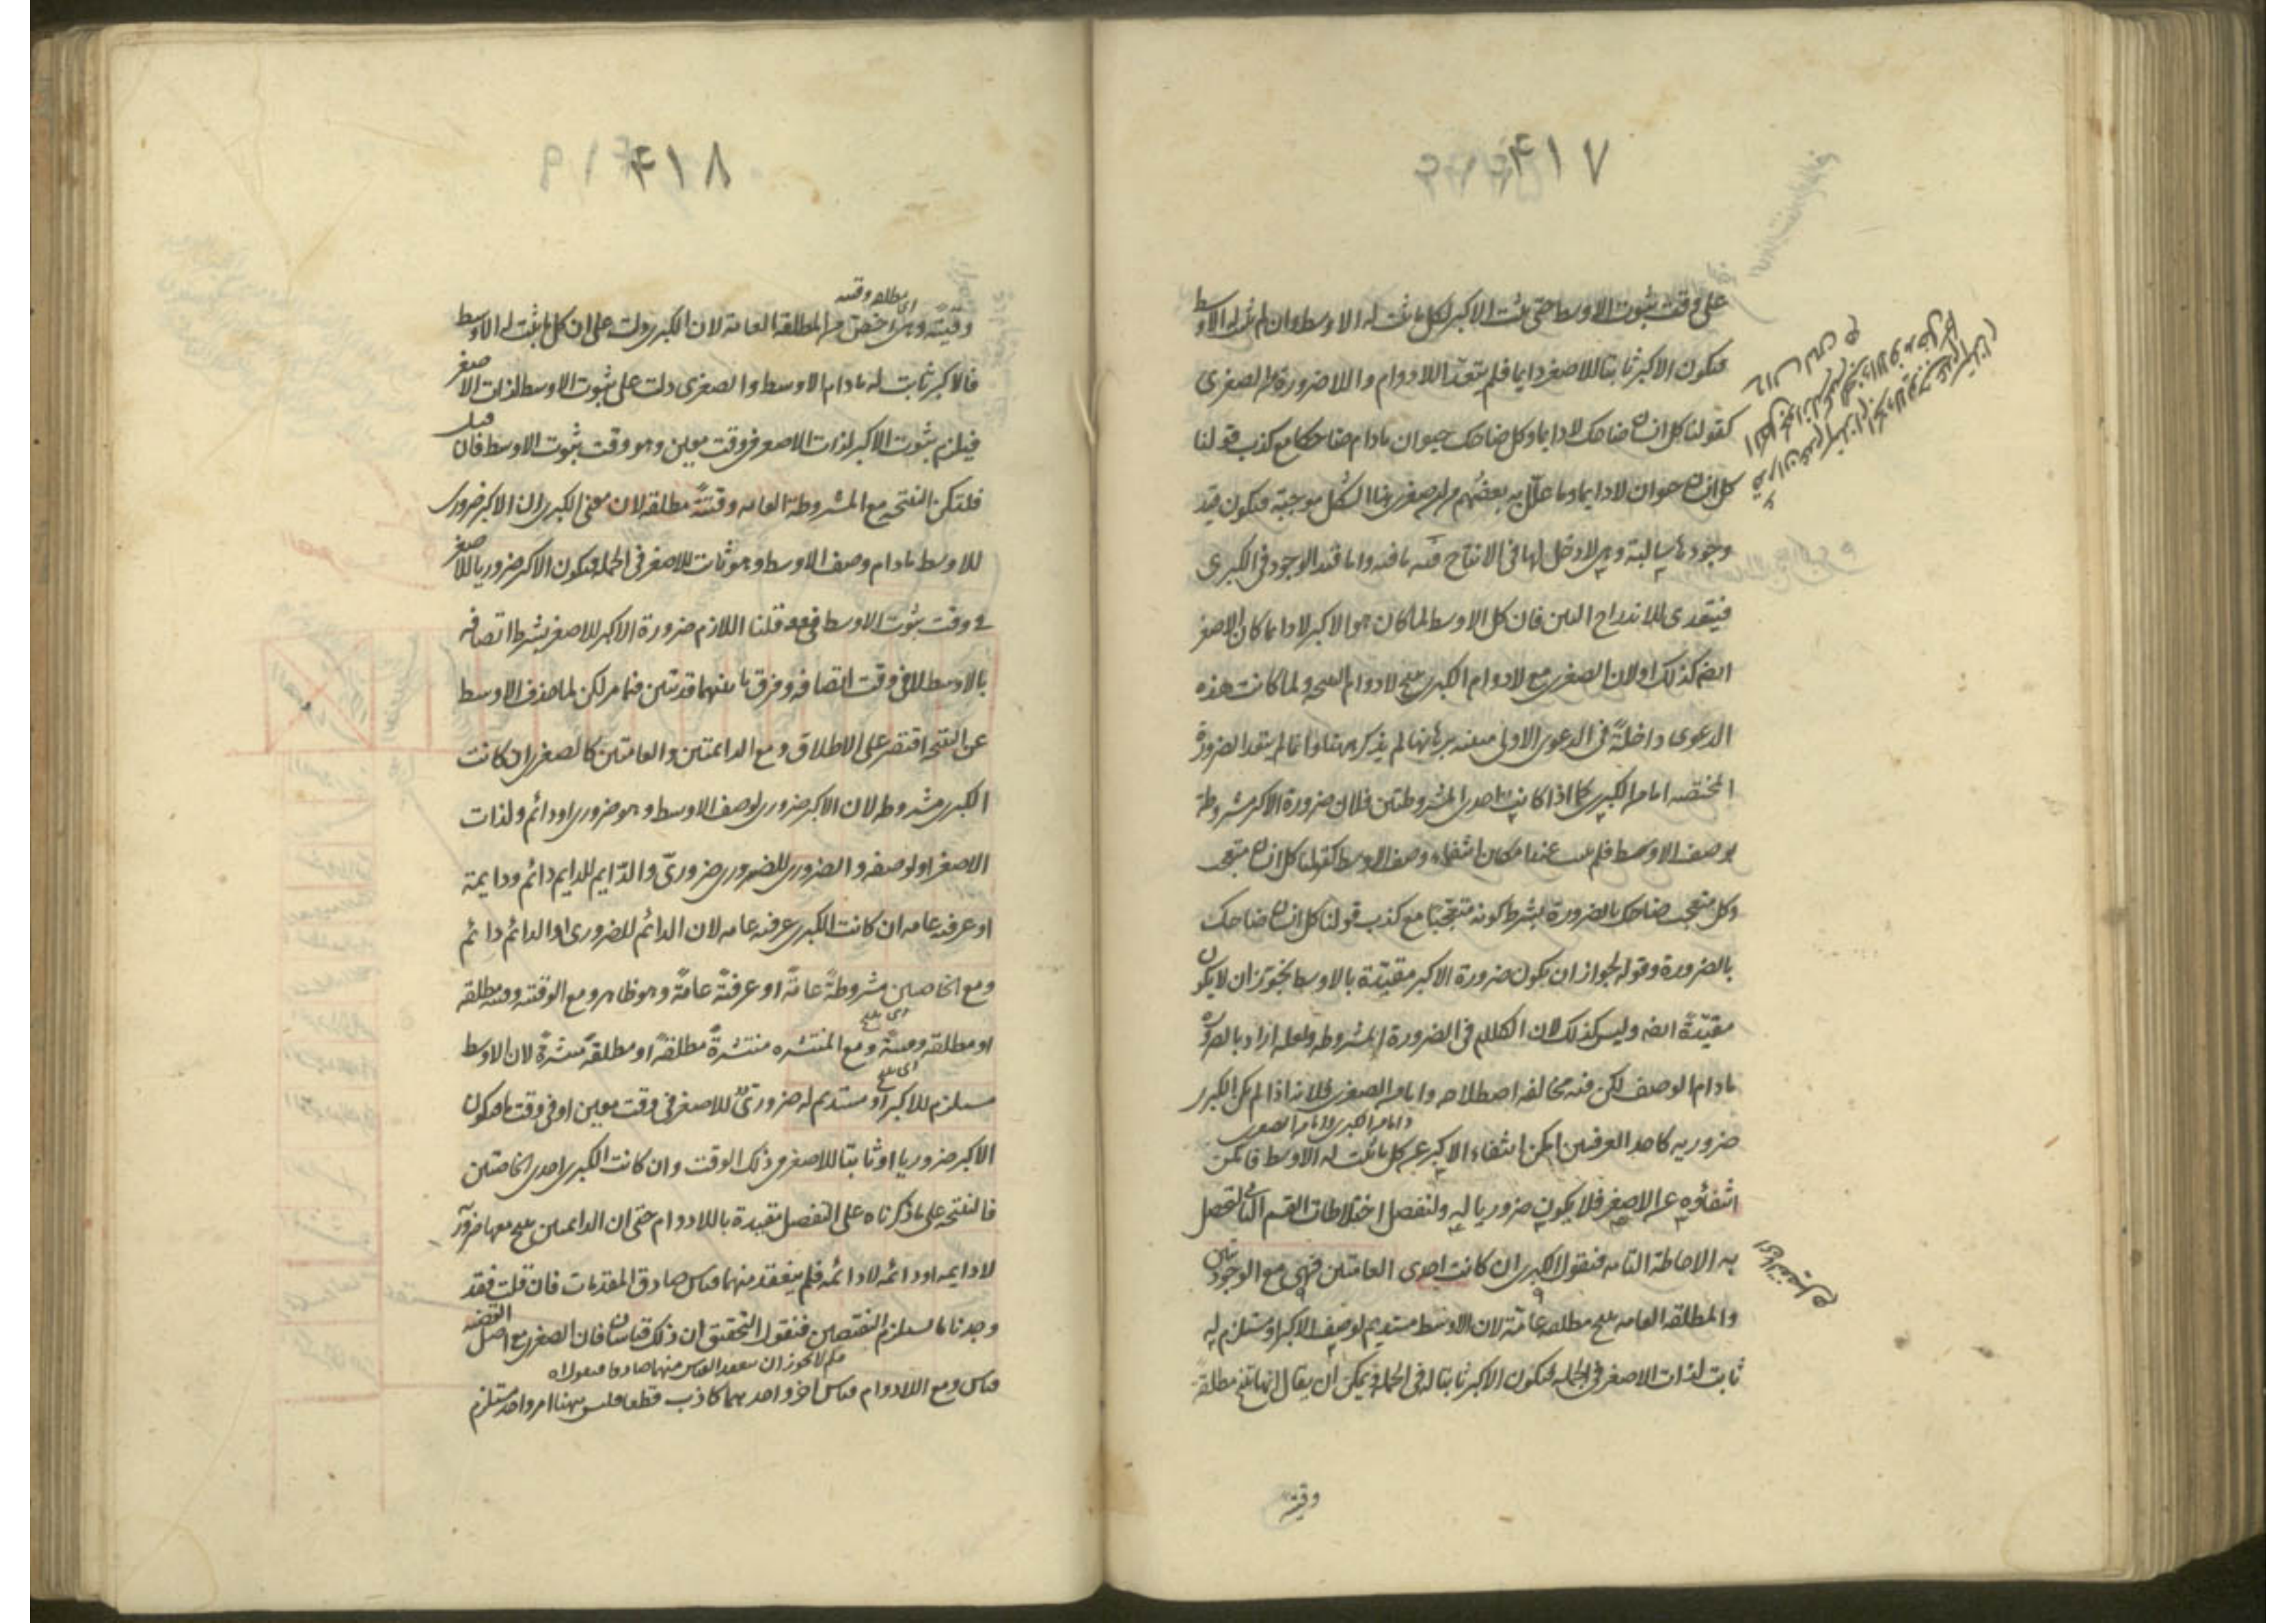 ۴۱۷
على وقت ثبوت الاوسط حتى يثبت الاكبر لكل ما ثبت له الاوسط وان لم يثبت له الاوسط
فيكون الاكبر ثابتا للاصغر دايما فلم يتعد اللادوام واللاضرورة من الصغرى
كقولنا كل انسان ضاحك لا دايما وكل ضاحك حيوان مادام ضاحكا مع كذب قولنا
كل انسان حيوان لا دايما وما علّل به بعضهم من ان صغرى هذا الشكل موجبة فيكون قيد
وجودها سالبة وهى لا دخل لها فى الانتاج فيه ما فيه واما قيد الوجود فى الكبرى
فيتعدى للاندراج البين فان كل الاوسط لما كان هو الاكبر لا دايما كان الاصغر
ايضا كذلك اولان الصغرى مع لادوام الكبرى ينتج لادوام النتيجة ولما كانت هذه
الدعوى داخلة فى الدعوى الاولى مبينة ببرهانها لم يذكر ههنا وانما لم يتعد الضرورة
المختصة اما من الكبرى كما اذا كانت احدى المشروطتين فلان ضرورة الاكبر مشروطة
بوصف الاوسط فلم عند امكان انتفاء وصف الاوسط كقولنا كل انسان متعجب
وكل متعجب ضاحك بالضرورة بشرط كونه متعجبا مع كذب قولنا كل انسان ضاحك
بالضرورة وقوله لجواز ان يكون ضرورة الاكبر مقيّدة بالاوسط تجوّز ان لا يكون
مقيّدةً ايضا وليس كذلك لان الكلام فى الضرورة المشروطة ولعله اراد بالضرورة
مادام الوصف لكن فيه مخالفة اصطلاحه واما من الصغرى فلانه اذا لم يكن الكبرى
ضرورية كاحد العرفيتين امكن انتفاء الاكبر عن كل ما ثبت له الاوسط فامكن
انتفاؤه عن الاصغر فلا يكون ضروريا له ولنفصل اختلاطات القسم الثانى لتحصل
به الاحاطة التامة فنقول الكبرى ان كانت احدى العامتين فهى مع الوجوديتين
والمطلقة العامة ينتج مطلقة عامّة لان الاوسط مستديم لوصف الاكبر او مستلزم له
ثابت لذات الاصغر فى الجملة فيكون الاكبر ثابتا له فى الجملة ويمكن ان يقال انها ينتج مطلقة
وقتية
۴۱۸
اى مطلقة وقتية
وقتيّة وهى اخص من المطلقة العامة لان الكبرى دلت على ان كل ما يثبت له الاوسط
فالاكبر ثابت له مادام الاوسط والصغرى دلت على ثبوت الاوسط لذات الاصغر
فيلزم ثبوت الاكبر لذات الاصغر فى وقت معين وهو وقت ثبوت الاوسط فان قيل
فلتكن النتيجة مع المشروطة العامة وقتيّةً مطلقة لان معنى الكبرى ان الاكبر ضرورى
للاوسط مادام وصف الاوسط وهو ثابت للاصغر فى الجملة فيكون الاكبر ضروريا للاصغر
فى وقت ثبوت الاوسط قلنا اللازم ضرورة الاكبر للاصغر بشرط اتصافه
بالاوسط لا فى وقت اتصافه وفرق ما بينهما قد تبين فيما مر لكن لما حذف الاوسط
عن النتيجة اقتصر على الاطلاق ومع الدائمتين والعامتين كالصغرى ان كانت
الكبرى مشروطة لان الاكبر ضرورى لوصف الاوسط وهو ضرورى او دائم ولذات
الاصغر او لوصفه والضرورى للضرورى ضرورىّ والدّايم للدايم دائم ودايمة
او عرفية عامة ان كانت الكبرى عرفية عامة لان الدائم للضرورى او الدائم دائم
ومع الخاصتين مشروطةً عامّة او عرفيّةً عامّةً وهو ظاهر ومع الوقتية وقتية مطلقة
او مطلقة وقتيّة ومع المنتشرة منتشرةً مطلقةً او مطلقةً منتشرةً لان الاوسط
مستلزم للاكبر او مستديم له ضرورىّ للاصغر فى وقت معين او فى وقت ما فيكون
الاكبر ضروريا او ثابتا للاصغر فى ذلك الوقت وان كانت الكبرى احدى الخاصتين
فالنتيجة على ما ذكرناه على التفصيل مقيدة باللادوام حتى ان الدائمتين ينتج معها ضرورية
لادايمة او دائمة لادائمة فلم ينعقد منهما قياس صادق المقدمات فان قلت فقد
وجدنا ما يستلزم النقيضين فنقول التحقيق ان ذلك قياسان فان الصغرى مع اصل القضية
قياس ومع اللادوام قياس اخر واحدهما كاذب قطعا فليس ههنا امر واحد يستلزم